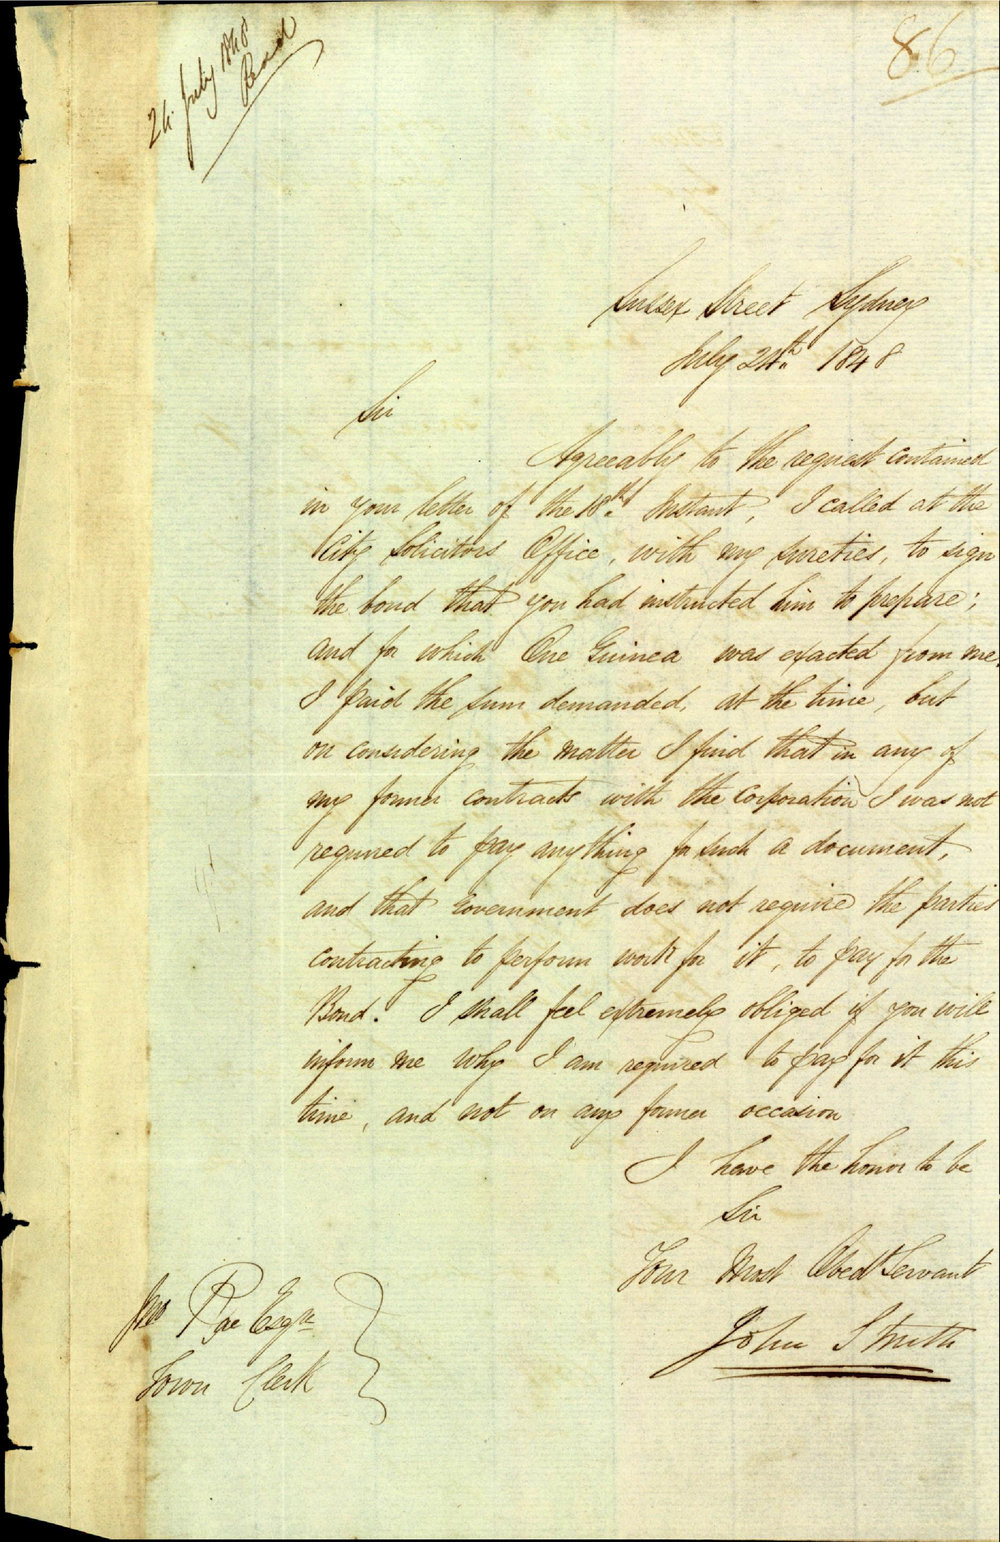 24 July 1848
Read
86
Sussex Street Sydney
July 24th 1848
Sir
Agreeably to the request contained
in your letter of the 18th Instant, I called at the
City Solicitors Office, with my sureties, to sign
the bond that you had instructed him to prepare;
and for which One Guinea was exacted from me,
I paid the sum demanded, at the time, but
on considering the matter I find that in any of
my former contracts with the Corporation I was not
required to pay anything for such a document,
and that Government does not require the parties
contracting to perform work for it, to pay for the
Bond. I shall feel extremely obliged if you will
inform me why I am required to pay for it this
time, and not on any former occasion
I have the honor to be
Sir
Your Most Obedt Servant
John Smith
Rae Esqre
Town Clerk